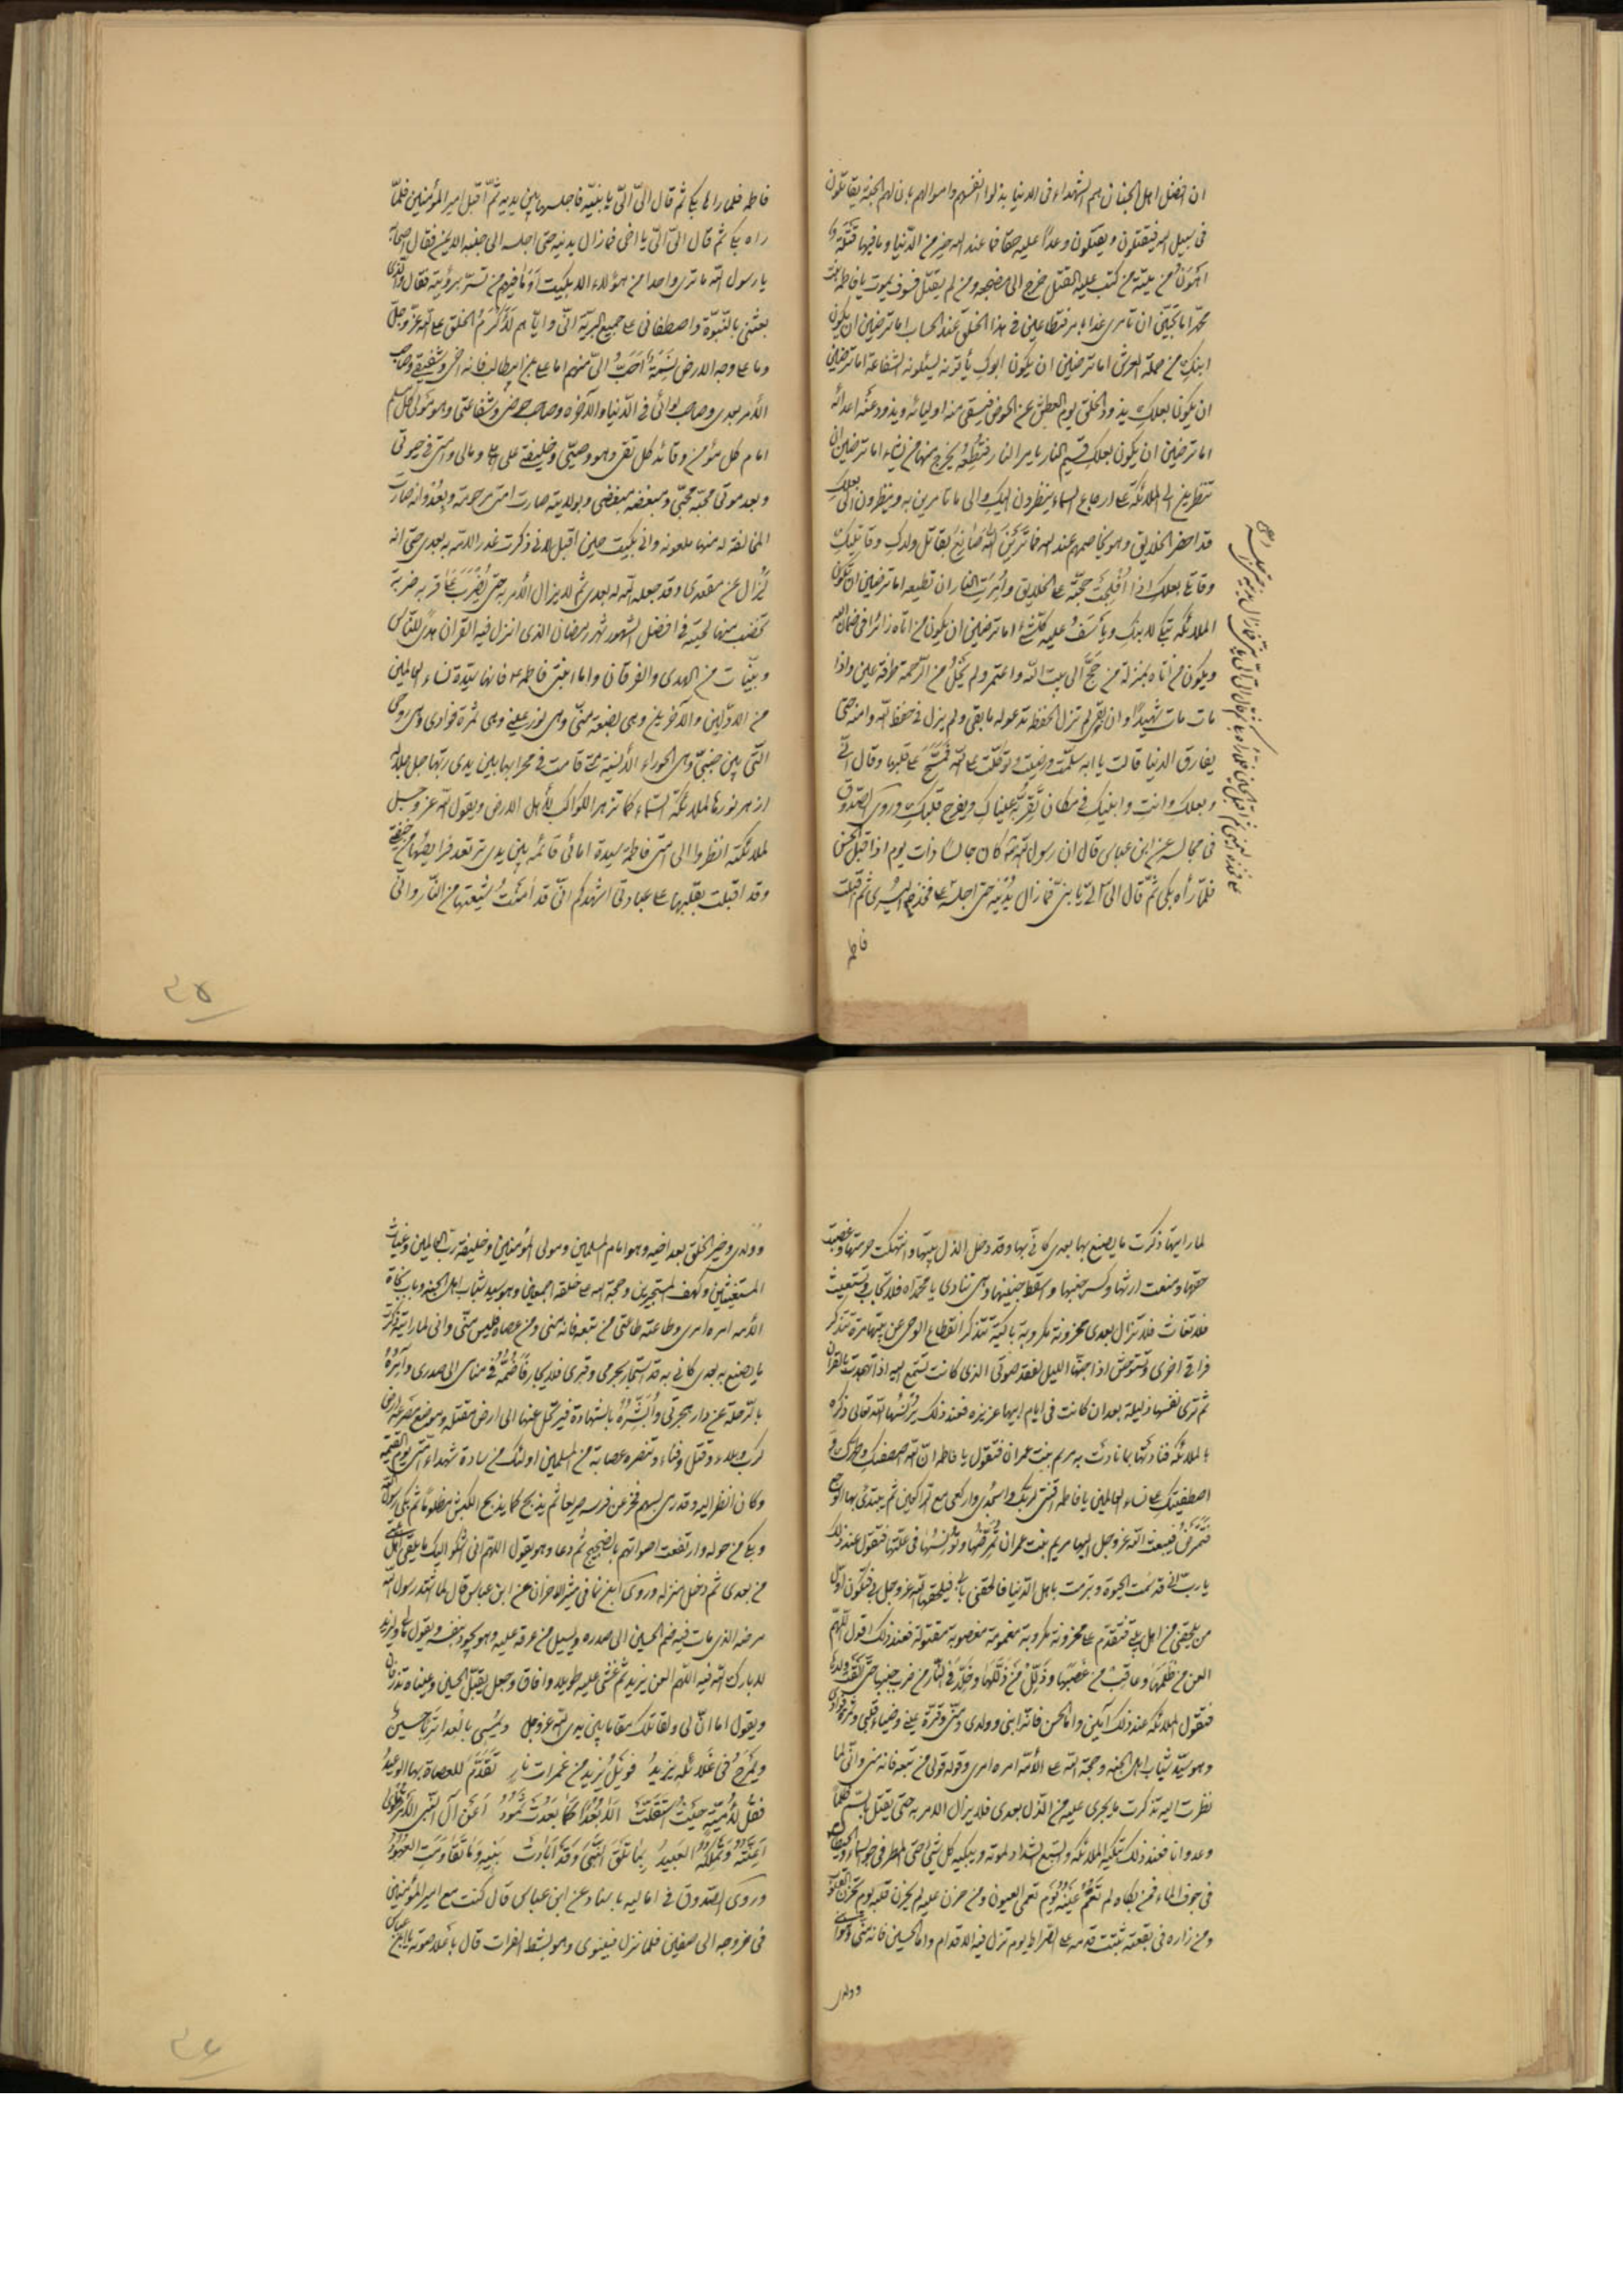 ان افضل اهل الجنان هم الشهداء فی الدنیا بذلوا انفسهم و اموالهم بان لهم الجنة یقاتلون
فی سبیل الله فیقتلون و یقتلون وعداً علیه حقا فما عند الله خیر من الدّنیا و ما فیها قتلة
اهون من میتة من کتب علیه القتل خرج الی مضجعه و من لم یقتل فسوف یموت یا فاطمة بنت
محمّد اما تحبّین ان تامری غدا بامر فتطاعین فی هذا الخلق عند الحساب اما ترضین ان یکون
ابنک من حملة العرش اما ترضین ان یکون ابوک یأتونه یسئلونه الشفاعة اما ترضین
ان یکون بعلک یذود الخلق یوم العطش عن الحوض فیسقی منه اولیائه و یذود عنه اعدائه
اما ترضین ان یکون بعلک قسیم النار یامر النار فتطیعه یخرج منها من یشاء اما ترضین ان
تنظرین الی الملائکة علی ارجاء السماء ینظرون الیک و الی ما تامرین به و ینظرون الی بعلک
قد احضر الخلایق و هو یخاصمهم عند الله فما ترین الله صانع بقاتل ولدک و قاتلیک
و قاتل بعلک اذا افلجت حجّته علی الخلایق و امرت النار ان تطیعه اما ترضین ان تکون
الملائکة تبکی لابنک و یأسف علیه کلّ شئ اما ترضین ان یکون من اتاه زائرا فی ضمان الله
و یکون من اتاه بمنزلة من حجّ الی بیت الله و اعتمر و لم یخل من الرّحمة طرفة عین و اذا
مات مات شهیداً و ان بقی لم تزل الحفظة تدعو له ما بقی و لم یزل فی حفظ الله و امنه حتی
یفارق الدنیا قالت یا ابه سلّمت و رضیت و توکّلت علی الله فمسح علی قلبها و قال انّی
و بعلک و انت و ابنیک فی مکان تقرّ به عیناک و یفرح قلبک و روی الصّدوق
فی مجالسه عن ابن عباس قال ان رسول الله کان جالسا ذات یوم اذ اقبل الحسن
فلمّا رأه بکی ثمّ قال الیّ الیّ یا بنیّ فما زال یدنیه حتی اجلسه علی فخذه الیسری ثم اقبلت
فاطمة
فاطمة فلما راها بکی ثم قال الیّ الیّ یا بنیّة فاجلسها بین یدیه ثمّ اقبل امیر المؤمنین فلمّا
راه بکی ثم قال الیّ الیّ یا اخی فما زال یدنیه حتی اجلسه الی جنبه الایمن فقال اصحابه
یا رسول الله ما تری واحدا من هؤلاء الا بکیت او ما فیهم من تسرّ برؤیته فقال و الّذی
بعثنی بالنّبوّة و اصطفانی علی جمیع البریّة انّی و ایّاهم لأکرم الخلق علی الله عزّ و جلّ
و ما علی وجه الارض نسمة أحبّ الیّ منهم اما علی بن ابیطالب فانه اخی و شفیقی و صاحب
الأمر بعدی و صاحب لوائی فی الدّنیا و الآخرة و صاحب حوضی و شفاعتی و هو مولی کل مسلم
امام کل مؤمن و قائد کل تقی و هو وصیّی و خلیفتی علی اهلی و مالی و امتی فی حیوتی
و بعد موتی محبّه محبّی و مبغضه مبغضی و بولایته صارت امتی مرحومة و بعداوته صارت
المخالفة له منها ملعونة و انی بکیت حین اقبل لانی ذکرت غدر الامة به بعدی حتی انه
لیزال عن مقعدی و قد جعله الله له بعدی ثم لا یزال الأمر به حتی یضرب علی قرنه ضربة
تخضب منها لحیته فی افضل الشهور شهر رمضان الذی انزل فیه القرآن هدی للناس
و بیّنات من الهدی و الفرقان و اما ابنتی فاطمة فانها سیّدة نساء العالمین
من الاوّلین و الآخرین و هی بضعة منّی و هی نور عینی و هی ثمرة فؤادی و هی روحی
التّی بین جنبیّ و هی الحوراء الأنسیة متی قامت فی محرابها بین یدی ربّها جلّ جلاله
ازهر نورها لملائکة السّماء کما تزهر الکواکب لأهل الارض و یقول الله عز و جل
لملائکته انظروا الی امتی فاطمة سیدة امائی قائمة بین یدی ترتعد فرایصها من خیفتی
و قد اقبلت بقلبها علی عبادتی اشهدکم انّی قد امنت شیعتها من النّار و انّی
لما رایتها ذکرت ما یصنع بها بعدی کانّی بها و قد دخل الذل بیتها و انتهکت حرمتها و غصبت
حقها و منعت ارثها و کسر جنبها و اسقطت جنینها و هی تنادی یا محمداه فلا تجاب و تستغیث
فلا تغاث فلا تزال بعدی محزونة مکروبة باکیة تتذکر انقطاع الوحی عن بیتها مرة و تتذکر
فراقی اخری و تستوحش اذا جنّها اللیل لفقد صوتی الذی کانت تستمع الیه اذا تهجدت بالقرآن
ثم تری نفسها ذلیلة بعد ان کانت فی ایام ابیها عزیزة فعند ذلک یؤنسها الله تعالی ذکره
بالملائکة فنادتها بما نادت به مریم بنت عمران فتقول یا فاطمة انّ الله اصطفیک و طهرک و
اصطفیک علی نساء العالمین یا فاطمة اقنتی لربک و اسجدی و ارکعی مع الراکعین ثم یبتدئ بها الوجع
فتمرض فیبعث الله عز و جل الیها مریم بنت عمران تمرّضها و تونسها فی علّتها فتقول عند ذلک
یا ربّ انّی قد سئمت الحیوة و تبرمت باهل الدّنیا فالحقنی بابی فیلحقها الله عز و جل بی فتکون اول
من یلحقنی من اهل بیتی فتقدم علیّ محزونة مکروبة مغمومة مغصوبة مقتولة فعند ذلک اقول اللهمّ
العن من ظلمها و عاقب من غصبها و ذلّل من ذلّلها و خلّد فی النّار من ضرب جنبها حتّی القت ولدها
فتقول الملائکة عند ذلک آمین و اما الحسن فانّه ابنی و ولدی و منّی و قرّة عینی و ضیاء قلبی و ثمرة فؤادی
و هو سیّد شباب اهل الجنة و حجة الله علی الأمّة امره امری و قوله قولی من تبعه فانه منی و انّی لما
نظرت الیه تذکرت ما یجری علیه من الذّل بعدی فلا یزال الامر به حتی یقتل بالسّم ظلماً
و عدوانا فعند ذلک تبکیه الملائکة و السّبع الشداد لموته و یبکیه کل شئ حتی الطیر فی جو السماء و الحیتان
فی جوف الماء فمن بکاه لم تعم عینه یوم تعمی العیون و من حزن علیه لم یحزن قلبه یوم تحزن القلوب
و من زاره فی بقعته ثبتت قدمه علی الصّراط یوم تزل فیه الاقدام و اما الحسین فانه منّی و هو ابنی
و ولدی
و ولدی و خیر الخلق بعد اخیه و هو امام المسلمین و مولی المؤمنین و خلیفة ربّ العالمین و غیاث
المستغیثین و کهف المستجیرین و حجة الله علی خلقه اجمعین و هو سید شباب اهل الجنة و باب نجاة
الأمة امره امری و طاعته طاعتی من تبعه فانه منی و من عصاه فلیس منّی و انی لما رایته تذکرت
ما یصنع به بعدی کانی به قد استجار بحرمی و قبری فلا یجار فأضمّه فی منامی الی صدری و آمره
بالرّحلة عن دار هجرتی و أبشّره بالشهادة فیرتحل عنها الی ارض مقتله و موضع مصرعه ارض
کرب و بلاء و قتل و فناء و تنصره عصابة من المسلمین اولئک من سادة شهداء امّتی یوم القیمة
و کانی انظر الیه و قد رمی بسهم فخرّ عن فرسه صریعا ثم یذبح کما یذبح الکبش مظلوماً ثم بکی رسول الله
و بکی من حوله و ارتفعت اصواتهم بالضجیج ثم دعا و هو یقول اللهم انی اشکو الیک ما یلقی اهل بیتی
من بعدی ثم دخل منزله و روی ابن نما فی مثیر الاحزان عن ابن عباس قال لما اشتد برسول الله
مرضه الذی مات فیه ضم الحسین الی صدره و یسیل من عرقه علیه و هو یجود بنفسه و یقول مالی و لیزید
لا بارک الله فیه اللّهم العن یزید ثمّ غشی علیه طویلا و افاق و جعل یقبّل الحسین و عیناه تذرفان
و یقول اما انّ لی و لقاتلک مقاما بین یدی الله عز و جل
و روی الصّدوق فی امالیه باسناده عن ابن عباس قال کنت مع امیر المؤمنین
فی خروجه الی صفین فلما نزل نینوی و هو بشط الفرات قال باعلا صوته یا ابن عباس